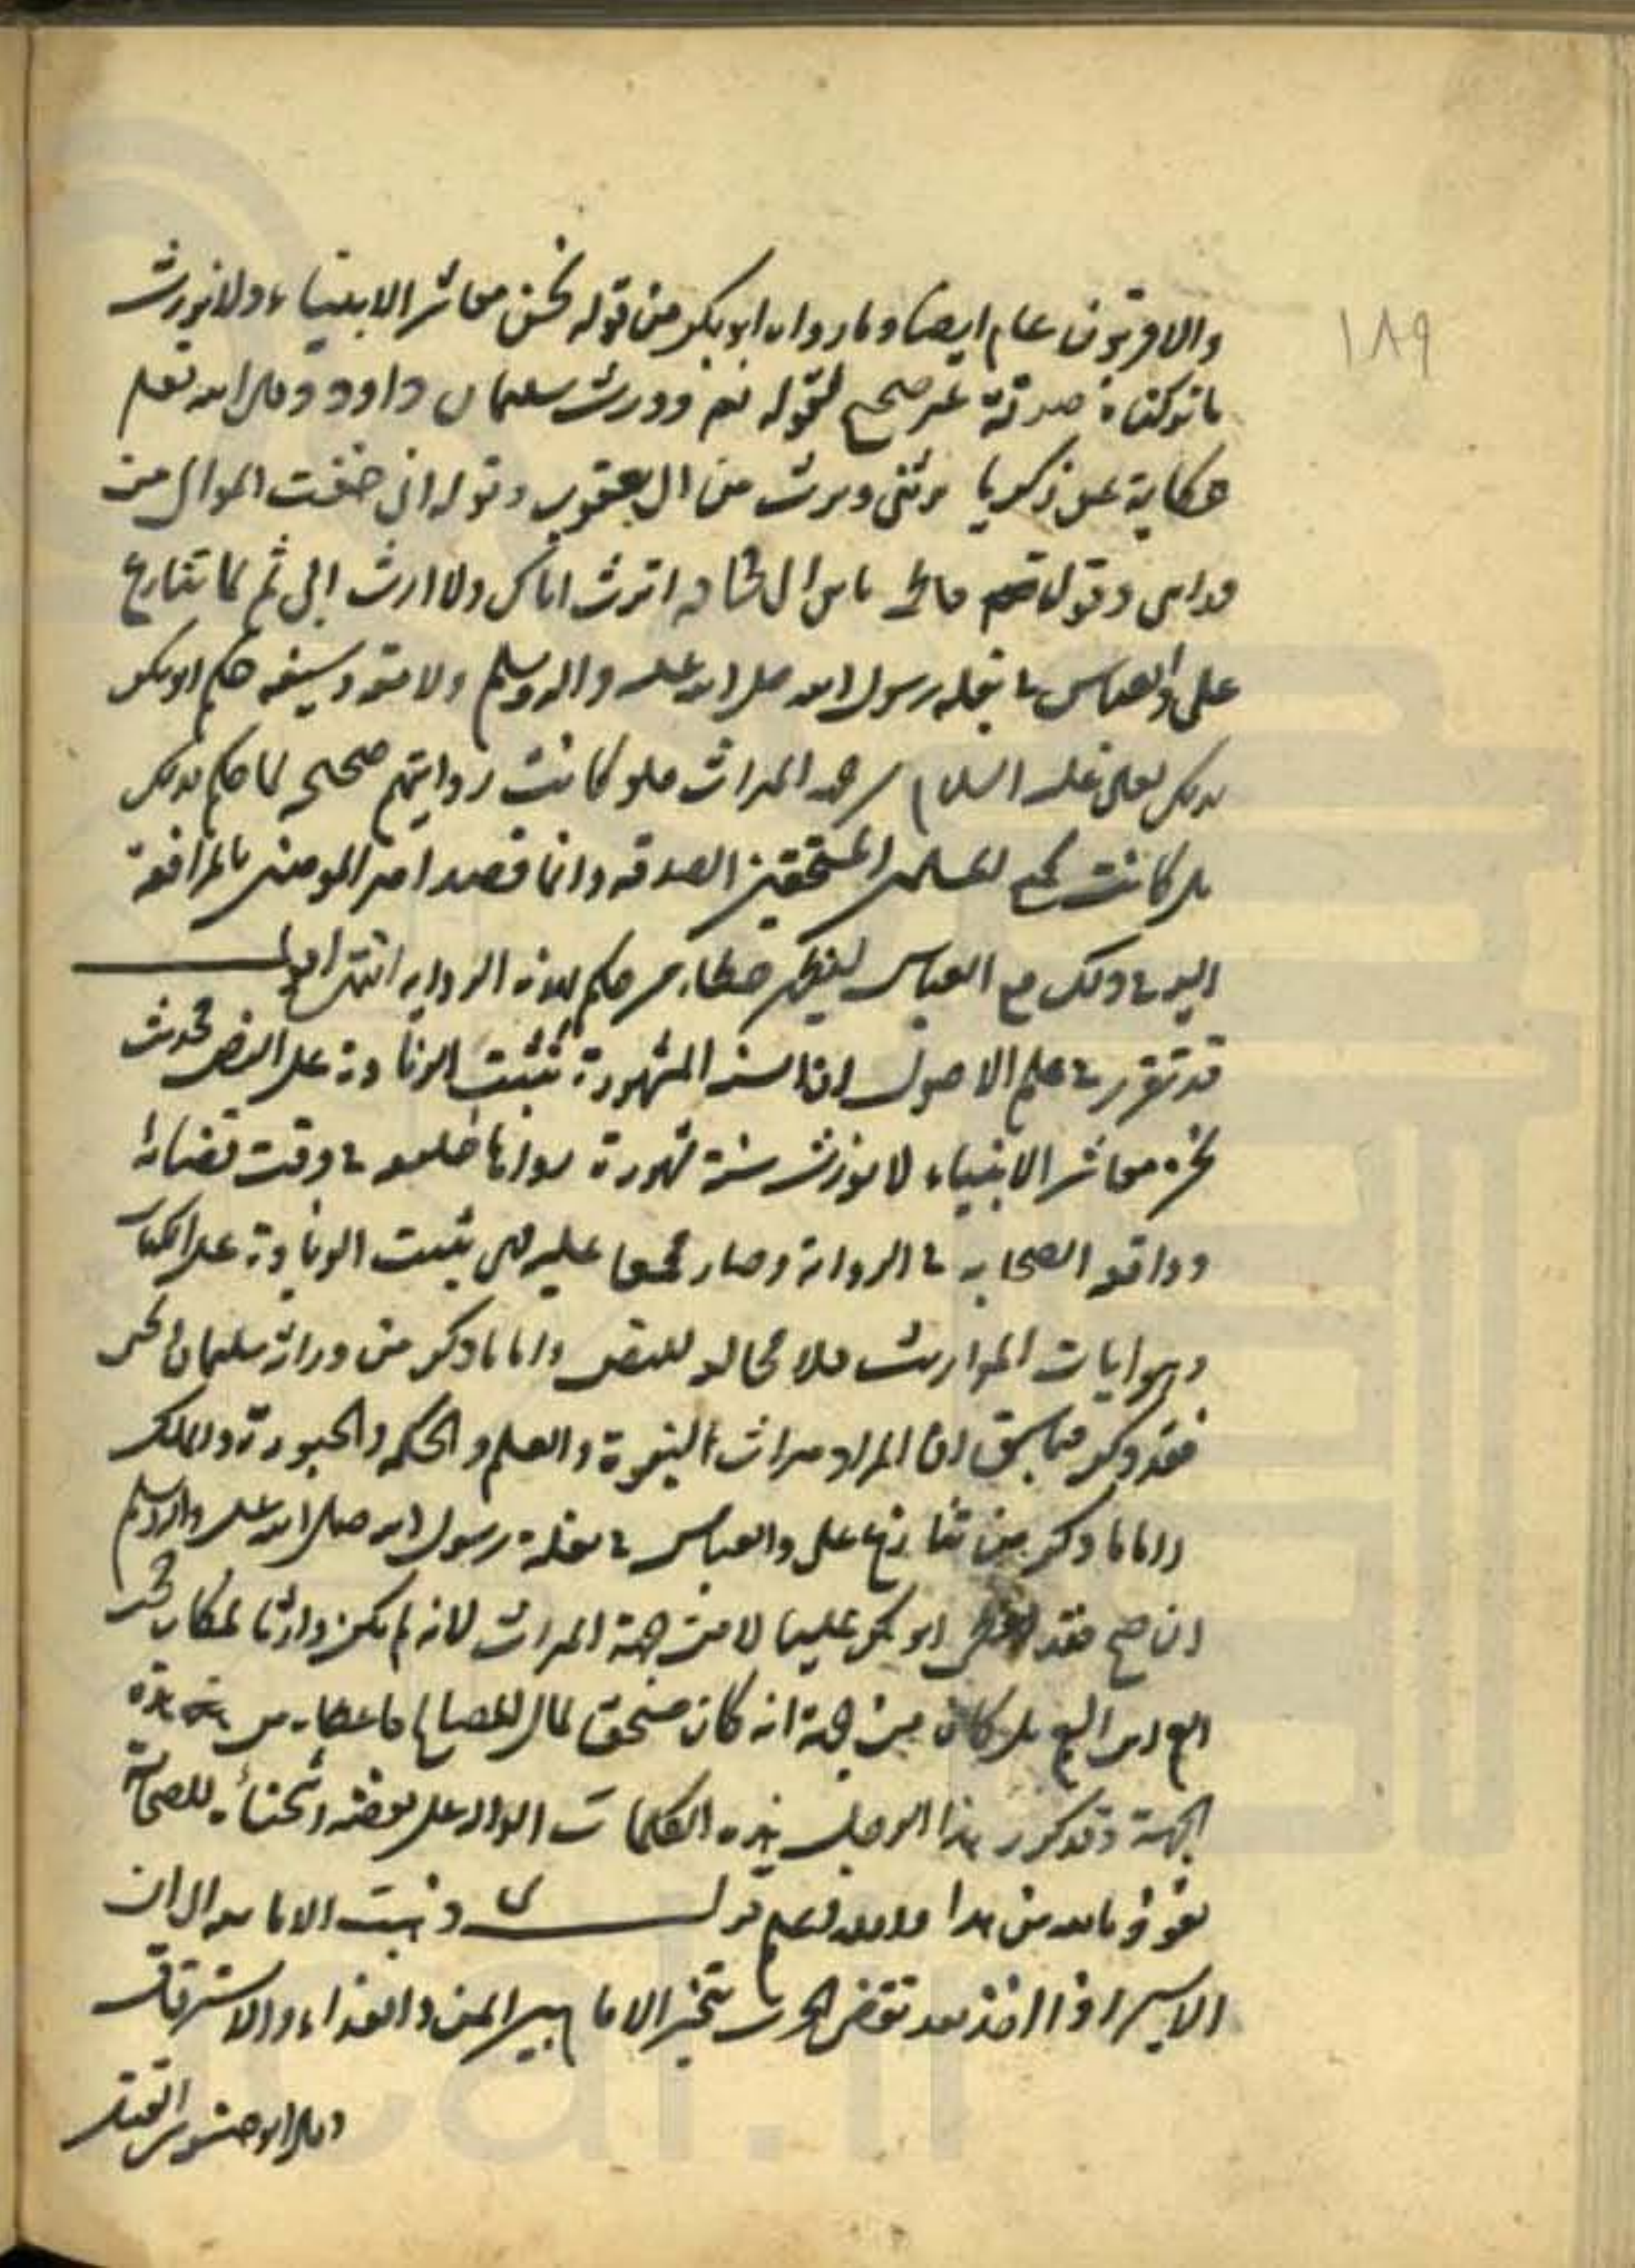 ١٨٩
والاقربون عام ايضا وما رواه ابو بكر من قوله نحن معاشر الانبياء ولا نورث
ما تركناه صدقة غير صحيح لقوله تعم وورث سليمان داود وقال الله تعم
حكاية عن زكريا يرثني ويرث من ال يعقوب وقوله اني خفت الموالي من
ورائي وقول فاطمة يا بن ابي قحافه اترث اباك ولا ارث ابي ثم لما تنازع
علي والعباس في بغله رسول الله صلى الله عليه واله وسلم ولامته وسيفه حكم ابو بكر
بذلك لعلي عليه السلام من جهه الميراث فلو كانت روايتهم صحيحه لما حكم بذلك
بل كانت لجميع المسلمين المستحقين الصدقه وانما قصد امير المومنين بالمرافعة
اليه في ذلك مع العباس ليظهر خطاء من حكم بهذه الروايه انتهى اقول
قد تقرر في علم الاصول ان السنه المشهورة تثبت الزيادة على النص فحديث
نحن معاشر الانبياء لا نورث سنة مشهورة رواها خليفه في وقت قضائه
ووافقه الصحابه في الرواية وصار مجمعا عليه فهي يثبت الزيادة على الكتاب
وهو ايات المواريث فلا مخالفه للنص واما ما ذكر من وراثة سليمان الخ
فقد ذكر فيما سبق ان المراد ميراث النبوة والعلم والحكمه والحبورة والملك
واما ما ذكر من تنازع علي والعباس في بغلة رسول الله صلى الله عليه واله وسلم
ان صح فقد اعطى ابو بكر عليا لا من جهة الميراث لانه لم يكن وارثا لمكان
العم ابن العم بل كان من جهة انه كان مستحق لمال المصالح فاعطاه من هذه
الجهة وقد كرر هذا الرجل هذه الكلمات الداله على بغضه وشحنائه للصحابة
نعوذ بالله من هذا والله اعلم قال وذهبت الاماميه الى ان
الاسير اذا اخذ بعد تقضي الحرب يتخير الامام بين المن والفداء والاسترقاق
وقال ابو حنيفه القتل